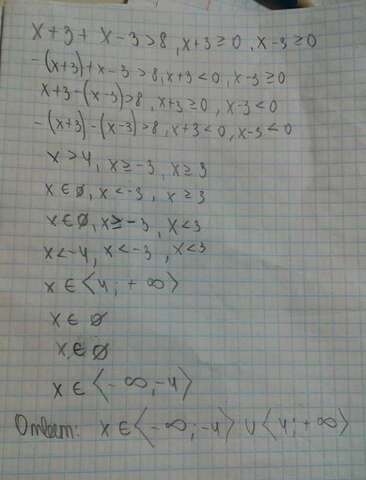 x+3+ x-3>8, x+3≥0, x-3≥0
-(x+3)+x-3>8, x+3<0, x-3≥0
x+3-(x-3)>8, x+3≥0, x-3<0
-(x+3)-(x-3)>8, x+3<0, x-3<0
x>4, x≥-3, x≥3
x∈∅, x<-3, x≥3
x∈∅, x≥-3, x<3
x<-4, x<-3, x<3
x∈⟨4;+∞⟩
x∈∅
x∈∅
x∈⟨-∞;-4⟩
Ответ: x∈⟨-∞;-4⟩∪⟨4;+∞⟩